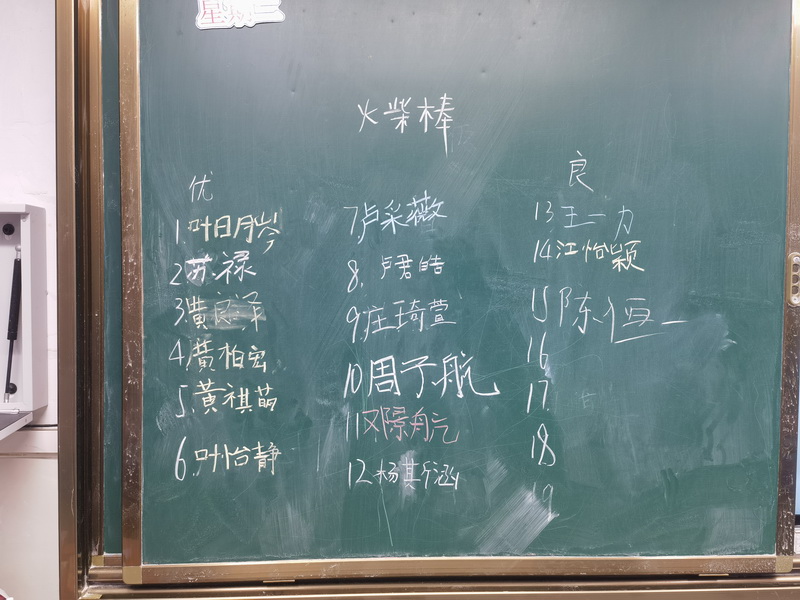 星期三
火柴棒
优
1 叶玥岑
2 苏禄
3 黄恩泽
4 黄柏宏
5. 黄祺萌
6. 叶怡静
7 卢采薇
8. 卢君皓
9. 庄琦萱
10 周子航
11 邓景航
12 杨其涵
良
13 王一力
14 江怡颖
15 陈恒一
16
17.
18
19